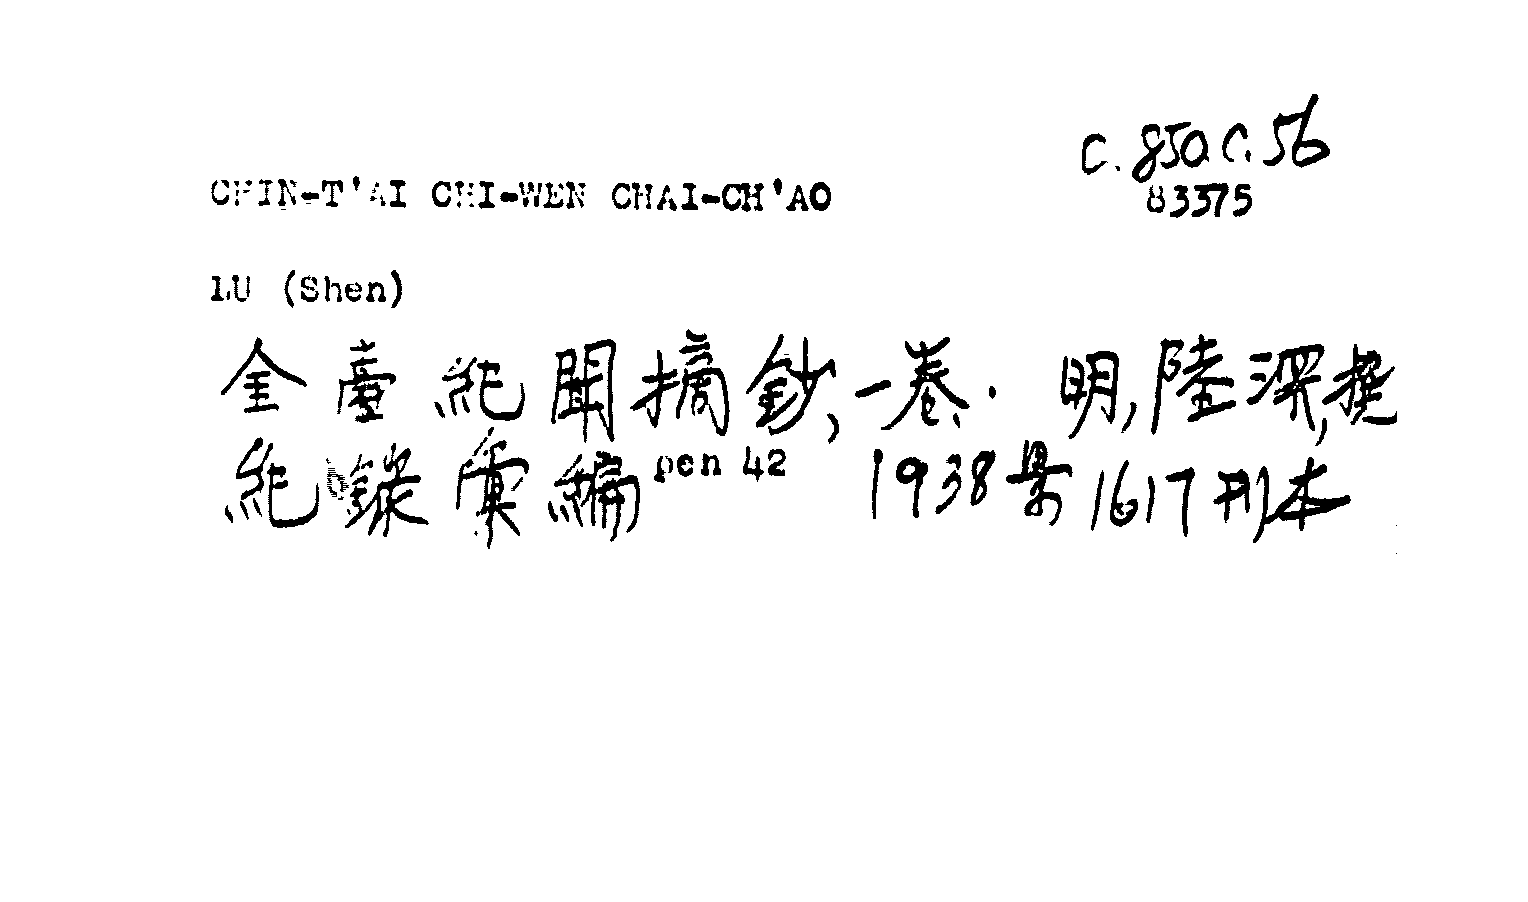 C. 850. C. 56
83375
CHIN-T'AI CHI-WEN CHAI-CH'AO
LU (Shen)
金臺紀聞摘鈔, 一卷. 明, 陸深, 撰
紀錄彙編 pen 42 1938景1617刊本